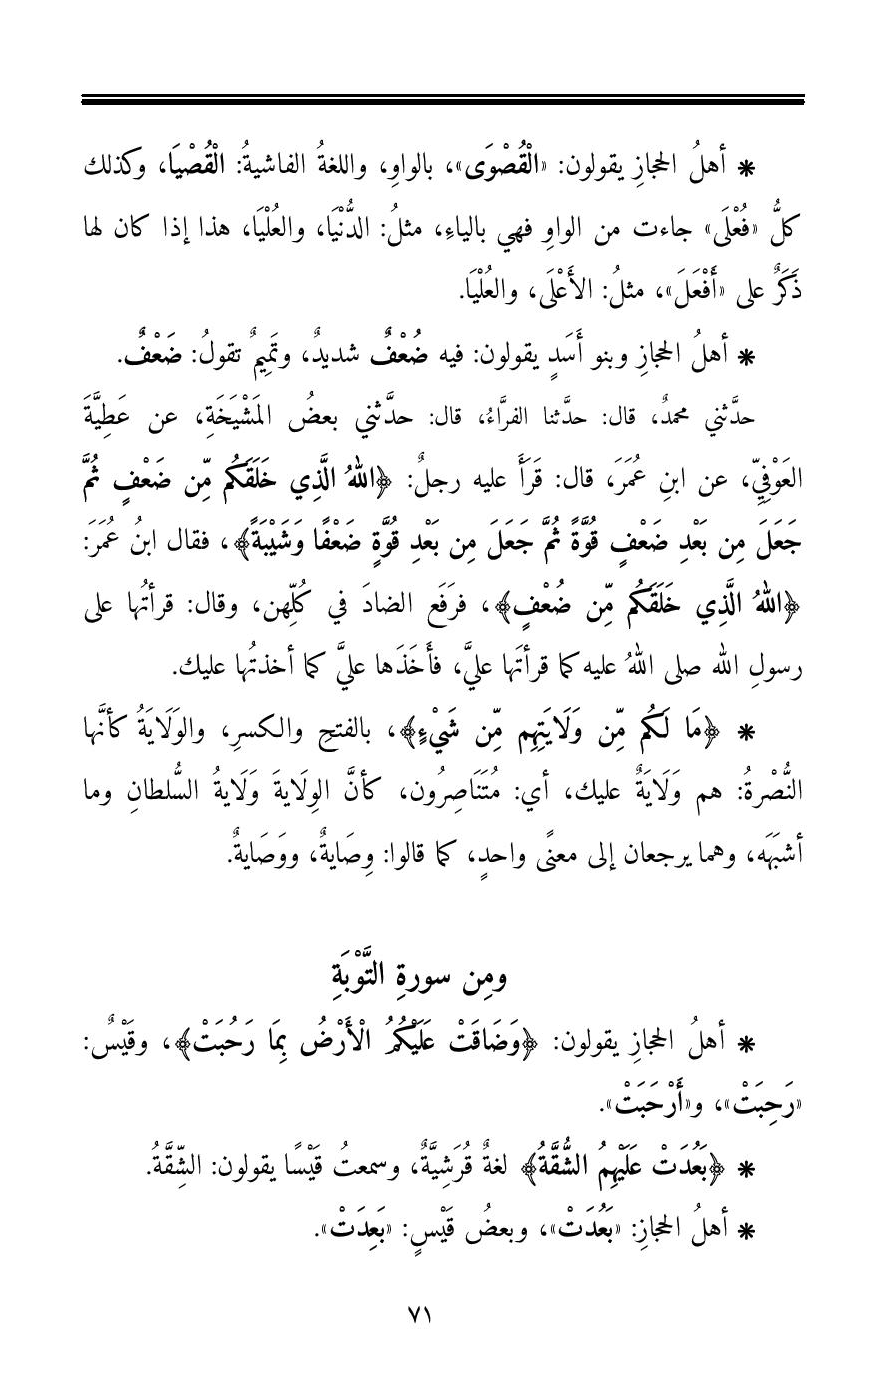 * أهلُ الحجازِ يقولون: «الْقُصْوَى»، بالواوِ، واللغةُ الفاشيةُ: الْقُصْيَا، وكذلك
كلُّ «فُعْلَى» جاءت من الواوِ فهي بالياءِ، مثلُ: الدُّنْيَا، والعُلْيَا، هذا إذا كان لها
ذَكَرٌ على «أَفْعَلَ»، مثلُ: الأَعْلَى، والعُلْيَا.
* أهلُ الحجازِ وبنو أَسَدٍ يقولون: فيه ضُعْفٌ شديدٌ، وتَمِيمٌ تقولُ: ضَعْفٌ.
حدَّثني محمدٌ، قال: حدَّثنا الفرَّاءُ، قال: حدَّثني بعضُ المَشْيَخَةِ، عن عَطِيَّةَ
العَوْفِيِّ، عن ابنِ عُمَرَ، قال: قَرَأَ عليه رجلٌ: ﴿اللهُ الَّذِي خَلَقَكُم مِّن ضَعْفٍ ثُمَّ
جَعَلَ مِن بَعْدِ ضَعْفٍ قُوَّةً ثُمَّ جَعَلَ مِن بَعْدِ قُوَّةٍ ضَعْفًا وَشَيْبَةً﴾، فقال ابنُ عُمَرَ:
﴿اللهُ الَّذِي خَلَقَكُم مِّن ضُعْفٍ﴾، فرَفَع الضادَ في كُلِّهن، وقال: قرأتُها على
رسولِ الله صلى اللهُ عليه كما قرأتَها عليَّ، فأَخَذَها عليَّ كما أخذتُها عليك.
* ﴿مَا لَكُم مِّن وَلَايَتِهِم مِّن شَيْءٍ﴾، بالفتحِ والكسرِ، والوَلَايَةُ كأنَّها
النُّصْرةُ: هم وَلَايَةٌ عليك، أي: مُتَنَاصِرُون، كأنَّ الوِلَايةَ وَلَايةُ السُّلطانِ وما
أشبَهَه، وهما يرجعان إلى معنًى واحدٍ، كما قالوا: وِصَايةٌ، ووَصَايةٌ.
ومِن سورةِ التَّوْبَةِ
* أهلُ الحجازِ يقولون: ﴿وَضَاقَتْ عَلَيْكُمُ الْأَرْضُ بِمَا رَحُبَتْ﴾، وقَيْسٌ:
«رَحِبَتْ»، و«أَرْحَبَتْ».
* ﴿بَعُدَتْ عَلَيْهِمُ الشُّقَّةُ﴾ لغةٌ قُرَشِيَّةٌ، وسمعتُ قَيْسًا يقولون: الشِّقَّةُ.
* أهلُ الحجازِ: «بَعُدَتْ»، وبعضُ قَيْسٍ: «بَعِدَتْ».
٧١